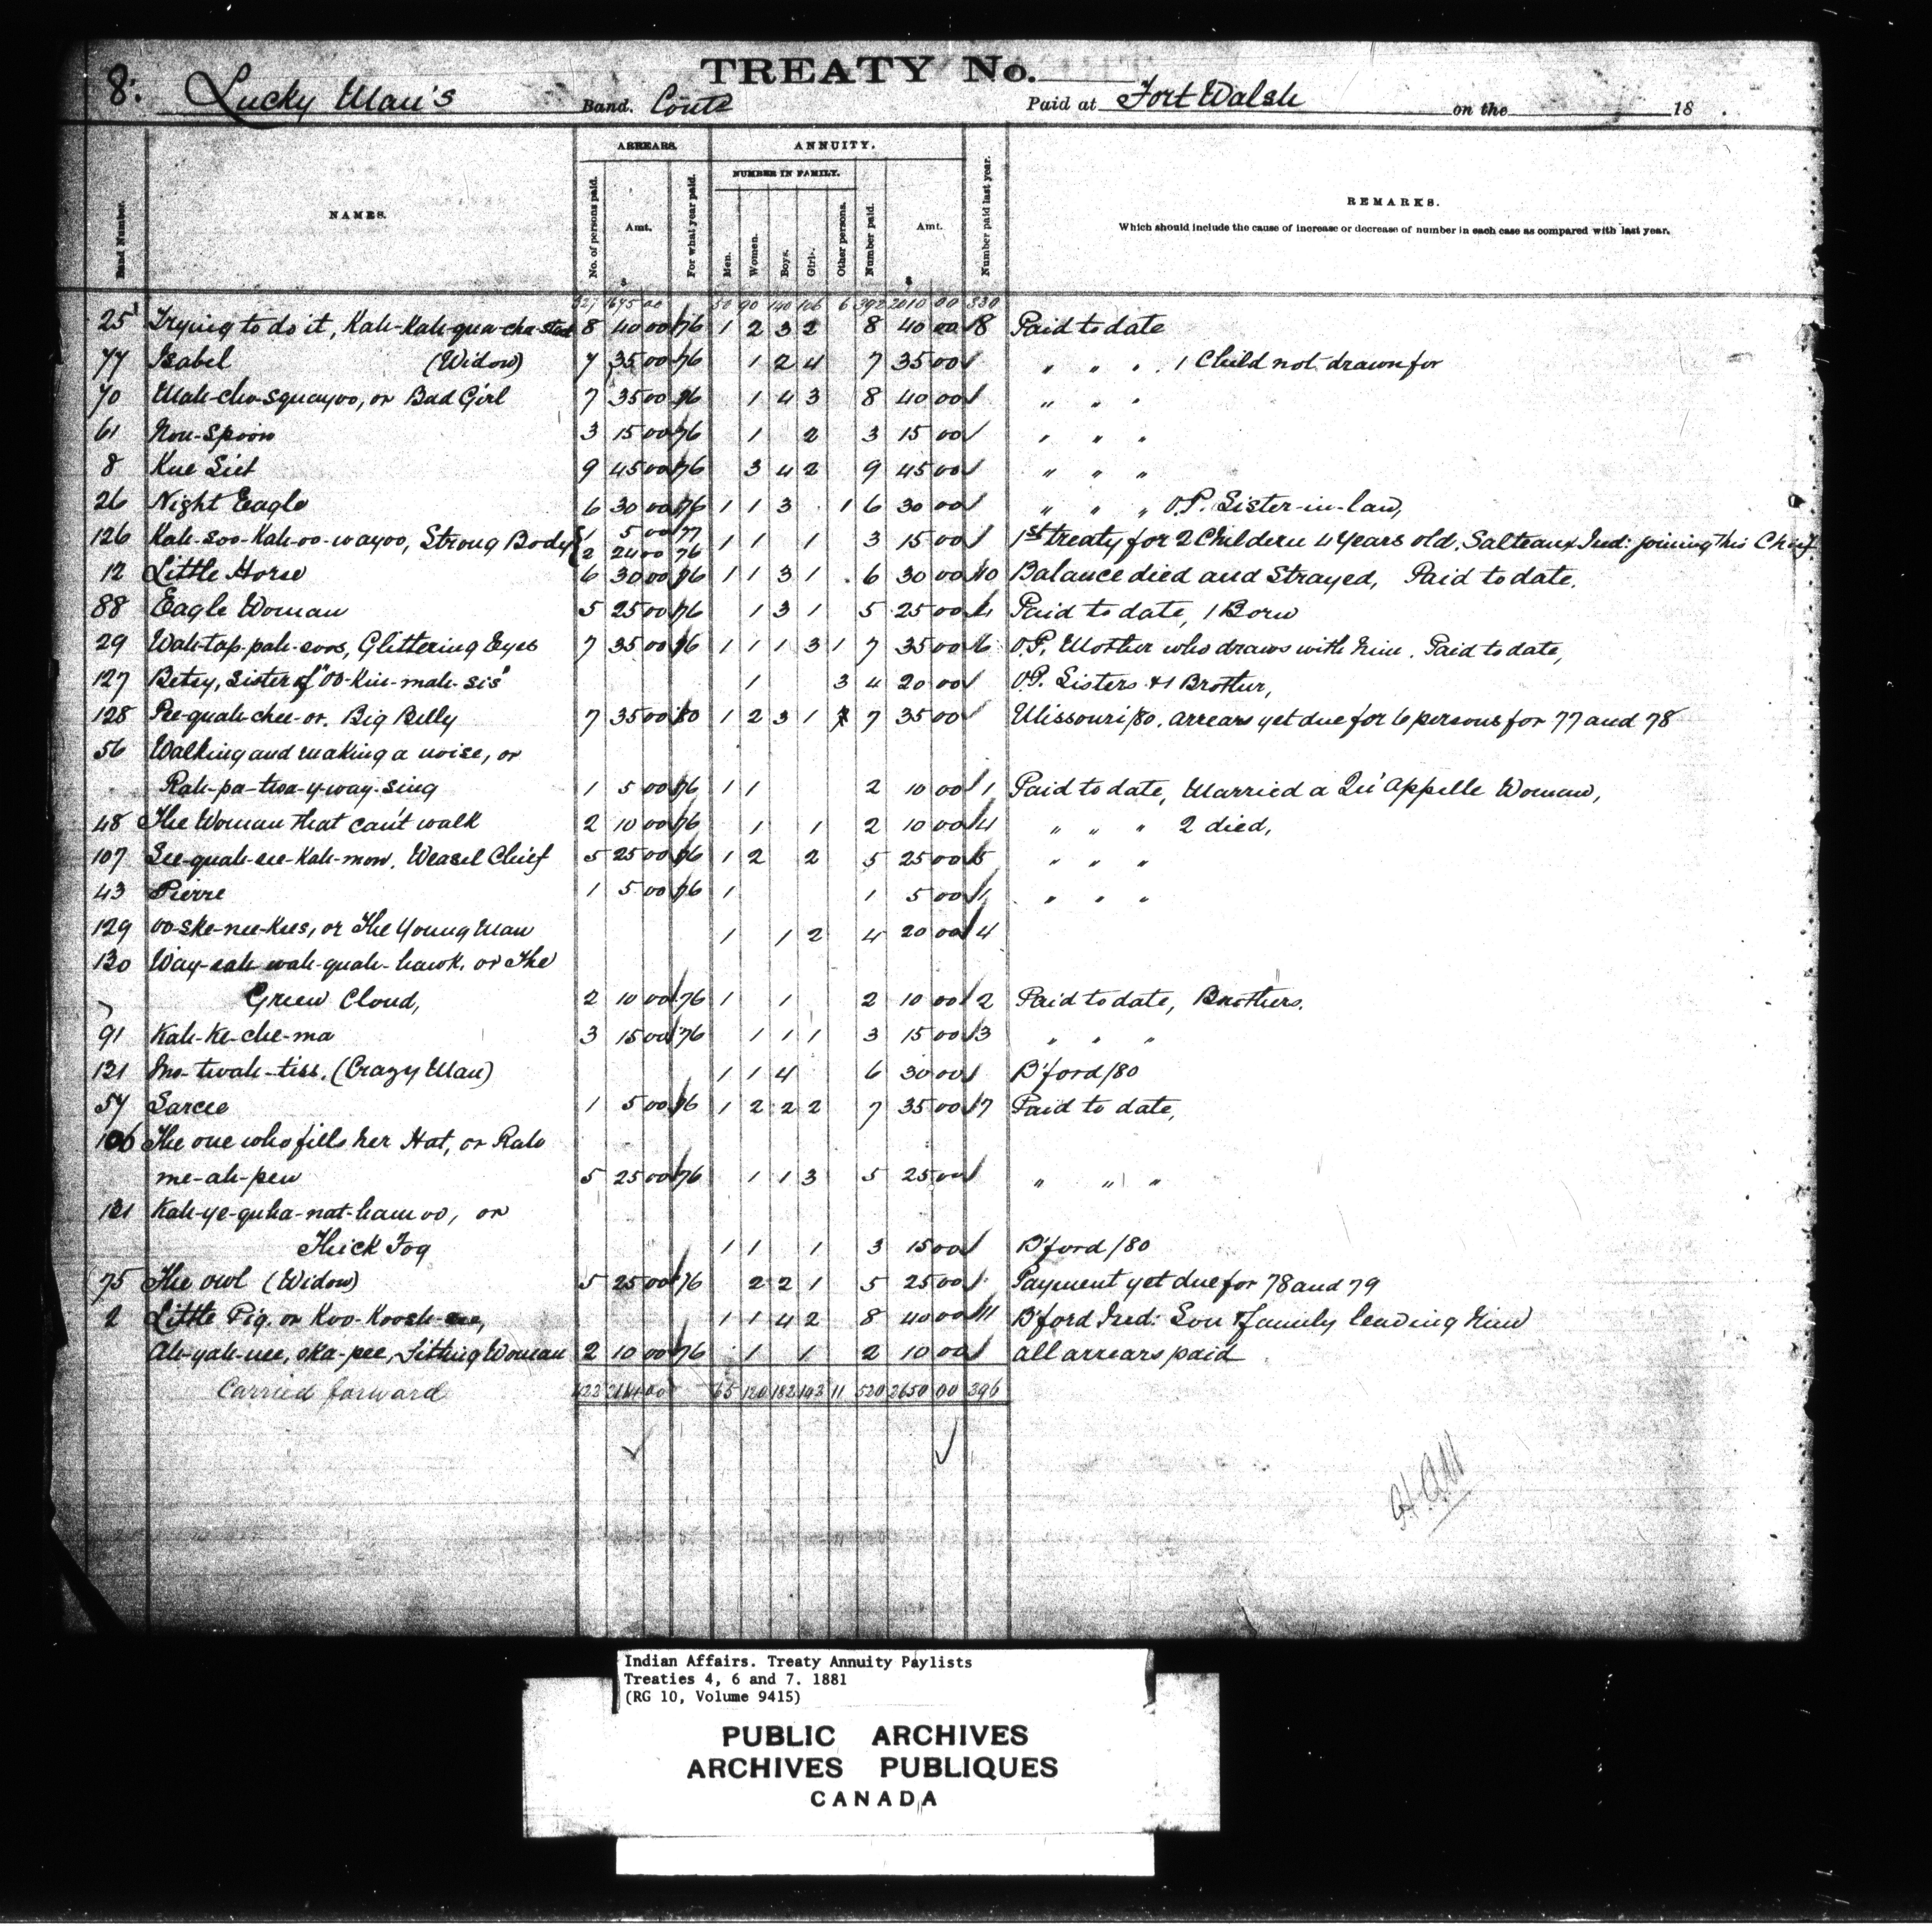 TREATY No.
8. Lucky Man's Band. Contd Paid at Fort Walsh on the 18 .
ARREARS. ANNUITY.
NUMBER IN FAMILY.
Band Number. NAMES. No. of persons paid. Amt. For what year paid. Men. Women. Boys. Girls. Other persons. Number paid. Amt. Number paid last year. REMARKS.
Which should include the cause of increase or decrease of number in each case as compared with last year.
$ $
327 1645 00 50 90 140 106 6 392 2010 00 330
25 Trying to do it, Kah-Kah-qua-cha 8 40 00 76 1 2 3 2 8 40 00 8 Paid to date
77 Isabel (Widow) 7 35 00 76 1 2 4 7 35 00 " " " . 1 Child not drawn for
70 Mah-cha-squayoo, or Bad Girl 7 35 00 76 1 4 3 8 40 00 " " "
61 Spoon 3 15 00 76 1 2 3 15 00 " " "
8 9 45 00 76 3 4 2 9 45 00 " " "
26 Night Eagle 6 30 00 76 1 1 3 1 6 30 00 " " " O.P. Sister-in-law,
126 Kah-soo-Kah-oo-wayoo, Strong Body { 1 5 00 77
2 24 00 76 1 1 1 3 15 00 1st treaty for 2 Childern 4 Years old. Salteaux Ind: joining this Chief
12 Little Horse 6 30 00 76 1 1 3 1 6 30 00 10 Balance died and Strayed, Paid to date.
88 Eagle Woman 5 25 00 76 1 3 1 5 25 00 4 Paid to date, 1 Born
29 Wah-tap-pah-soos, Glittering Eyes 7 35 00 76 1 1 1 3 1 7 35 00 6 O.P. Mother who draws with him. Paid to date,
127 Betsy, Sister of "Oo-Kin-mah-sis" 1 3 4 20 00 O.P. Sisters & 1 Brother,
128 Pee-quah-chee-or. Big Belly 7 35 00 80 1 2 3 1 7 35 00 Missouri/80. arrears yet due for 6 persons for 77 and 78
56 Walking and making a noise, or
Kah-pa-twa-y-way-sing 1 5 00 76 1 1 2 10 00 1 Paid to date, Married a Qu'Appelle Woman,
48 The Woman that can't walk 2 10 00 76 1 1 2 10 00 4 " " " 2 died,
107 See-quah-see-Kah-mow. Weasel Chief 5 25 00 76 1 2 2 5 25 00 5 " " "
43 Pierre 1 5 00 76 1 1 5 00 1 " " "
129 Oo-ske-nee-kees, or The Young Man 1 1 2 4 20 00 4
130 Way-sah-wah-quah-hawk. or The
Green Cloud, 2 10 00 76 1 1 2 10 00 2 Paid to date, Brothers.
91 Kah-Ke-che-ma 3 15 00 76 1 1 1 3 15 00 3 " " "
131 Mo-twah-tiss. (Crazy Man) 1 1 4 6 30 00 B'ford/80
57 Sarcee 1 5 00 76 1 2 2 2 7 35 00 7 Paid to date,
106 The one who fills her Hat, or Kah
me-ah-pew 5 25 00 76 1 1 3 5 25 00 " " "
121 Kah-ye-quha-nat-ham oo, or
Thick Fog 1 1 1 3 15 00 B'ford/80
75 The owl (Widow) 5 25 00 76 2 2 1 5 25 00 Payment yet due for 78 and 79
2 Little Pig. or Koo-Koosh 1 1 4 2 8 40 00 11 B'ford Ind: Son & family leaving him
Ah-yah-nee, ska-pee, Sitting Woman 2 10 00 76 1 1 2 10 00 all arrears paid
Carried forward 65 120 182 143 11 520 2650 00 396
Indian Affairs. Treaty Annuity Paylists
Treaties 4, 6 and 7. 1881
(RG 10, Volume 9415)
PUBLIC ARCHIVES
ARCHIVES PUBLIQUES
CANADA